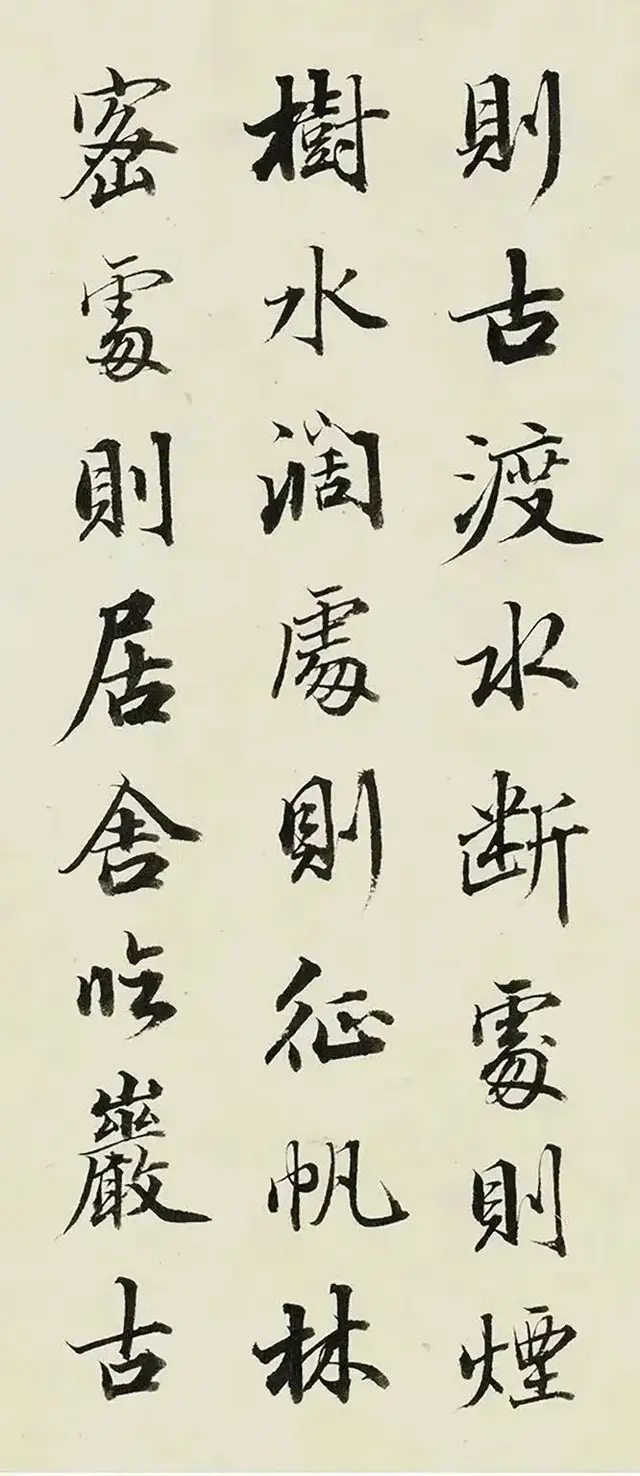 則古渡水断處則煙
樹水濶處則征帆林
密處則居舍臨巖古